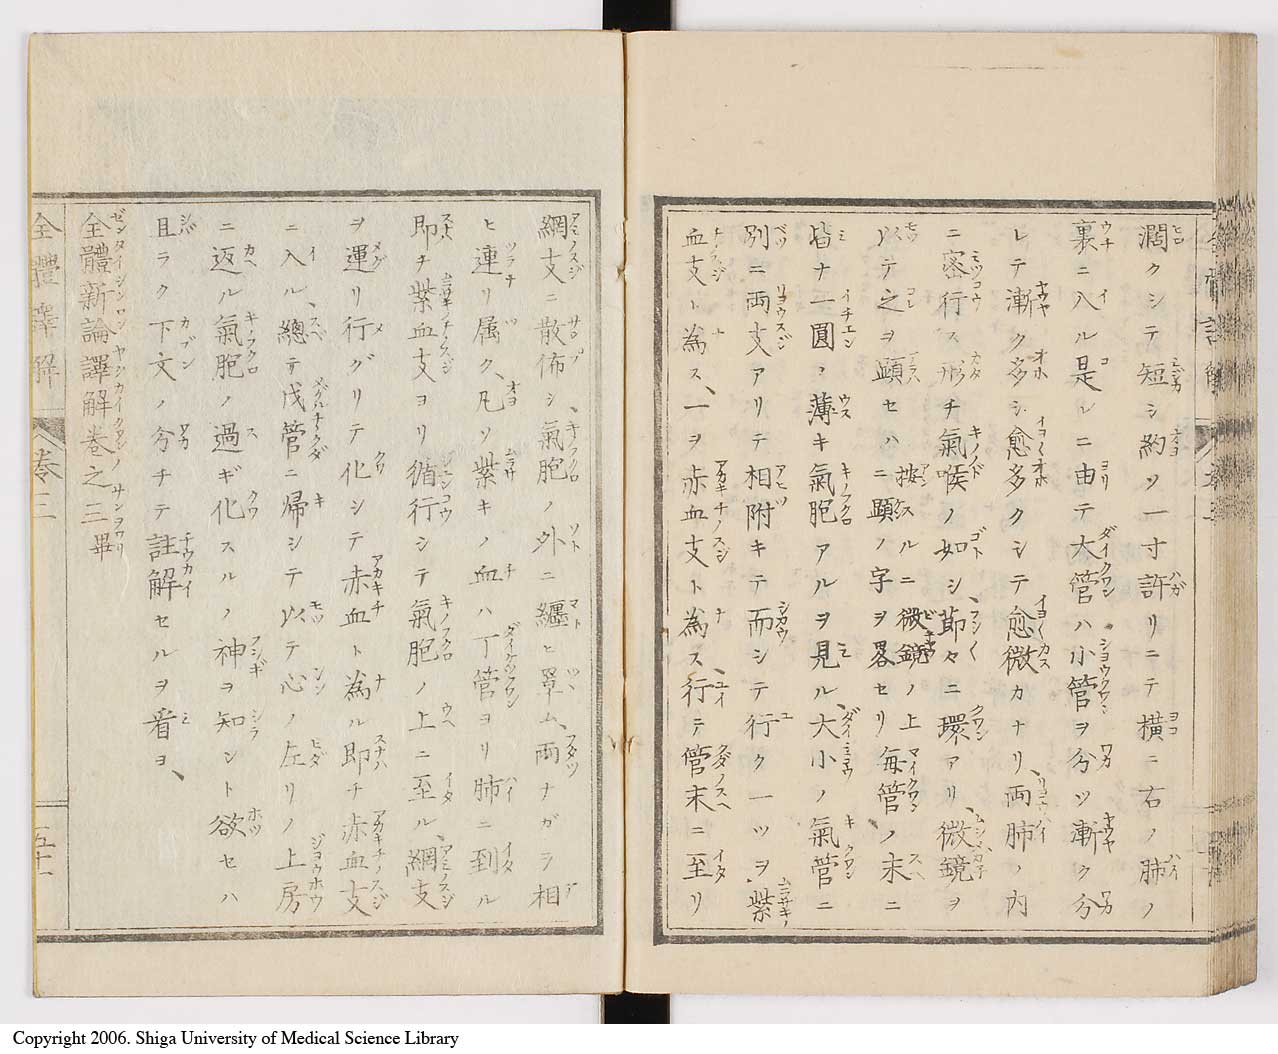 濶クシテ短シ約ソ一寸許リニテ横ニ右ノ肺ノ
裏ニ入ル是レニ由テ大管ハ小管ヲ分ツ漸ク分
レテ漸ク多シ愈多クシテ愈微カナリ、両肺ノ内
ニ密行ス形チ氣喉ノ如シ、節々ニ環アリ、微鏡ヲ
以テ之ヲ顕セハ按スルニ微鏡ノ上ニ顕ノ字ヲ畧セリ毎管ノ末ニ
皆ナ一圓ノ薄キ氣胞アルヲ見ル、大小ノ氣管ニ
別ニ両支アリテ相附キテ而シテ行ク一ツヲ紫
血支ト為ス、一ヲ赤血支ト為ス、行テ管末ニ至リ
網支ニ散佈シ、氣胞ノ外ニ纏ヒ罩ム、両ナガラ相
ヒ連リ属ク、凡ソ紫キノ血ハ丁管ヨリ肺ニ到ル
即チ紫血支ヨリ循行シテ氣胞ノ上ニ至ル、網支
ヲ運リ行グリテ化シテ赤血ト為ル即チ赤血支
ニ入ル、總テ戊管ニ帰シテ以テ心ノ左リノ上房
ニ返ル氣胞ノ過ギ化スルノ神ヲ知ント欲セハ
且ラク下文ノ分チテ註解セルヲ看ヨ、
全體新論譯解巻之三畢
全體譯解
巻三
五十一
Copyright 2006. Shiga University of Medical Science Library